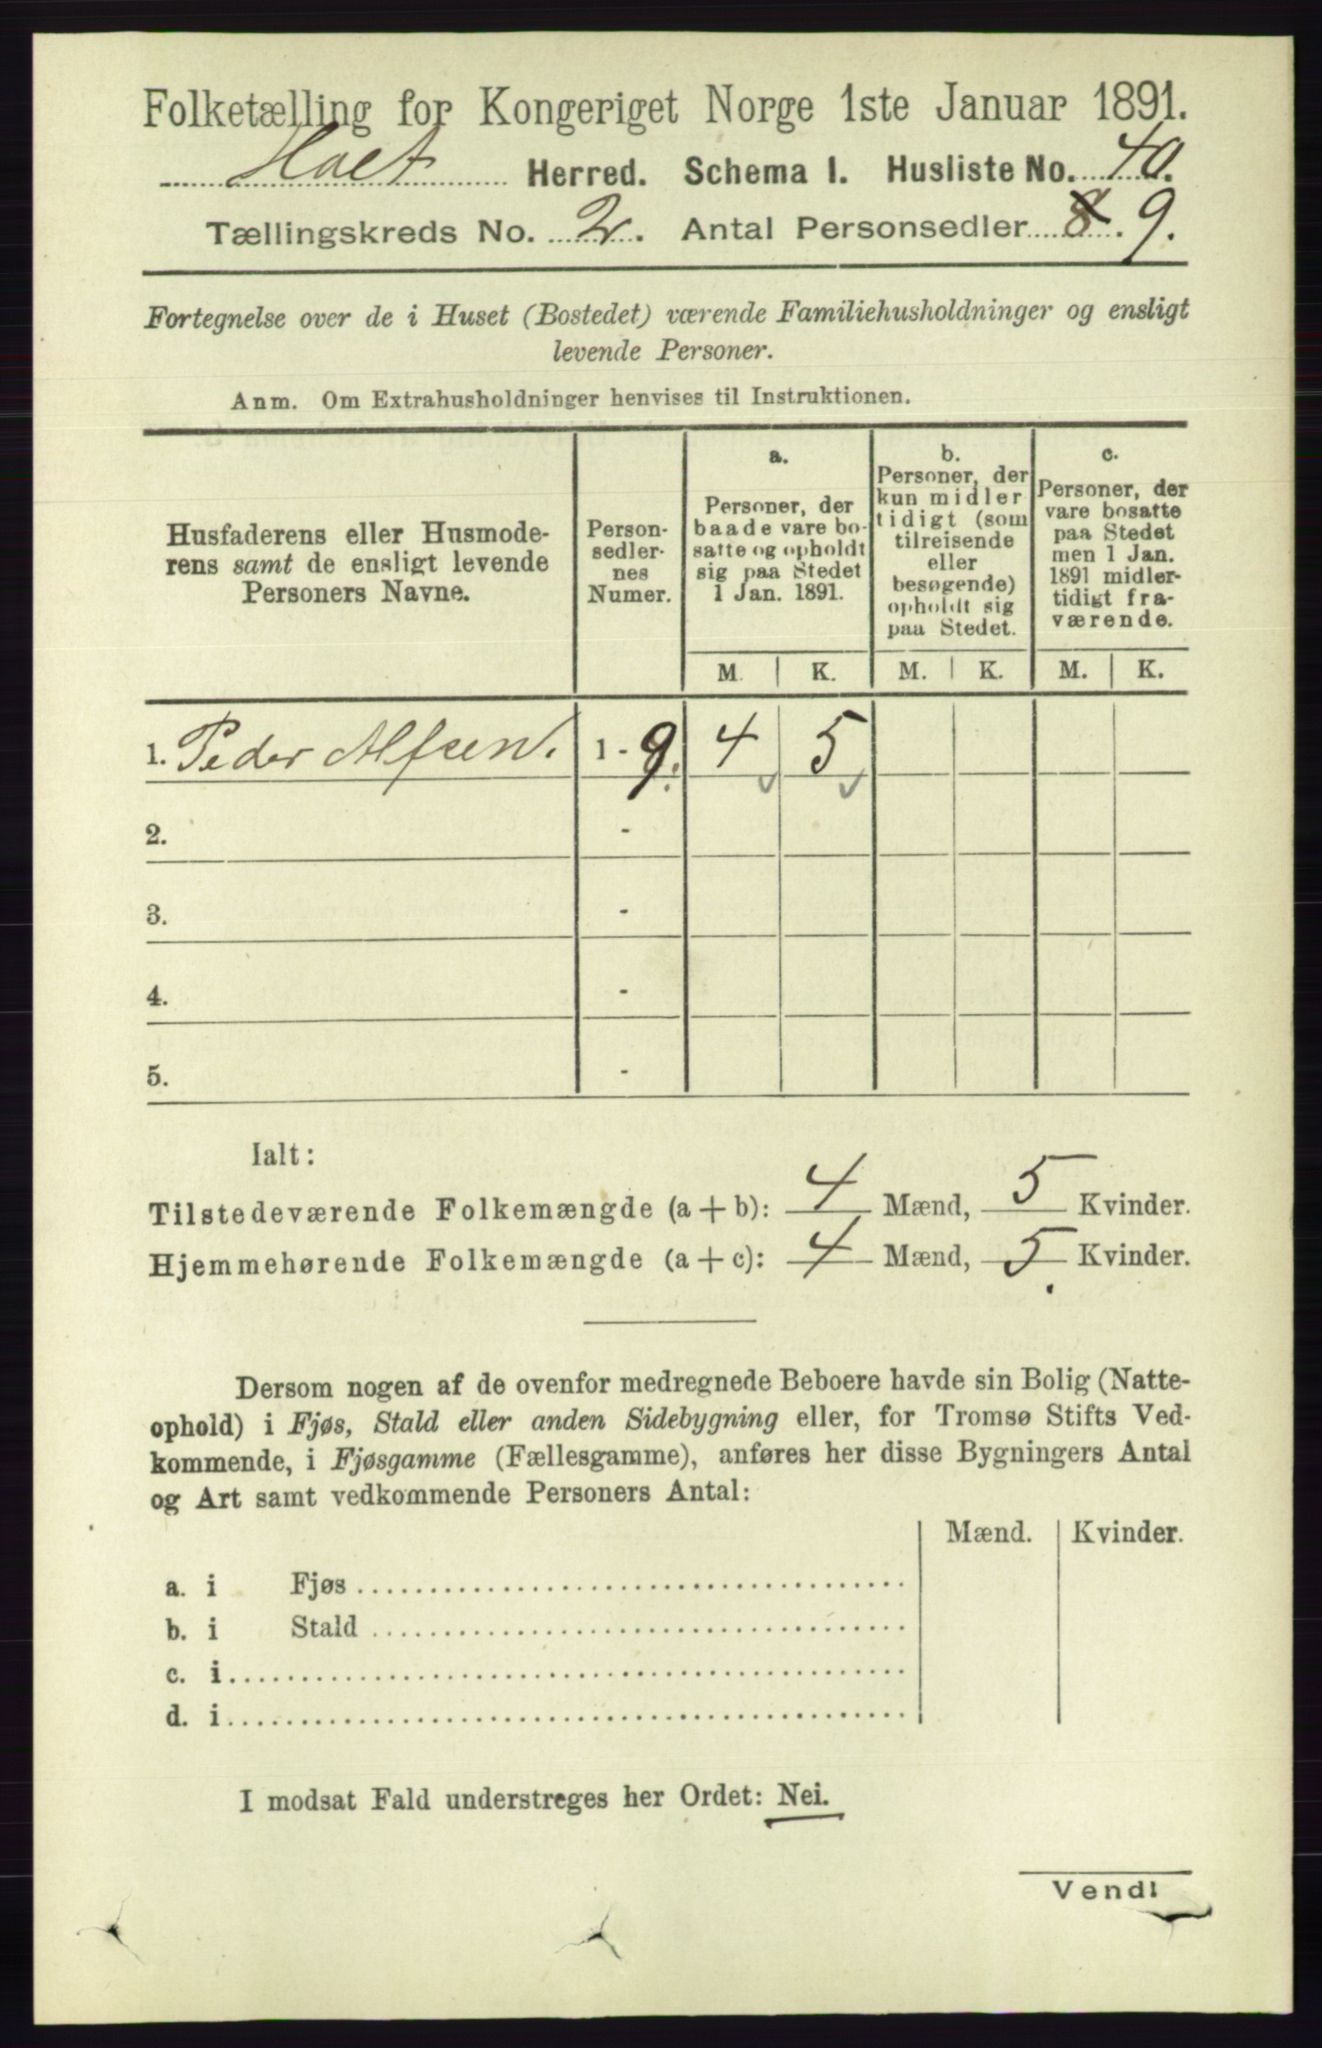 Folketælling for Kongeriget Norge 1ste Januar 1891.
Holt Herred. Schema I. Husliste No. 40.
Tællingskreds No. 2. Antal Personsedler 8. 9.
Fortegnelse over de i Huset (Bostedet) værende Familiehusholdninger og ensligt
levende Personer.
Anm. Om Extrahusholdninger henvises til Instruktionen.
Husfaderens eller Husmode-
rens samt de ensligt levende
Personers Navne.
Person-
sedler-
nes
Numer.
a.
Personer, der
baade vare bo-
satte og opholdt
sig paa Stedet
1 Jan. 1891.
b.
Personer, der
kun midler
tidigt (som
tilreisende
eller
besøgende)
opholdt sig
paa Stedet.
c.
Personer, der
vare bosatte
paa Stedet
men 1 Jan.
1891 midler-
tidigt fra-
værende.
M. K. M. K. M. K.
1. Peder Alfsen. 1 - 9. 4 5
2. -
3. -
4. -
5. -
Ialt:
Tilstedeværende Folkemængde (a + b): 4 Mænd, 5 Kvinder.
Hjemmehørende Folkemængde (a + c): 4 Mænd, 5 Kvinder.
Dersom nogen af de ovenfor medregnede Beboere havde sin Bolig (Natte-
ophold) i Fjøs, Stald eller anden Sidebygning eller, for Tromsø Stifts Ved-
kommende, i Fjøsgamme (Fællesgamme), anføres her disse Bygningers Antal
og Art samt vedkommende Personers Antal:
Mænd. Kvinder.
a. i Fjøs
b. i Stald
c. i
d. i
I modsat Fald understreges her Ordet: Nei.
Vend!